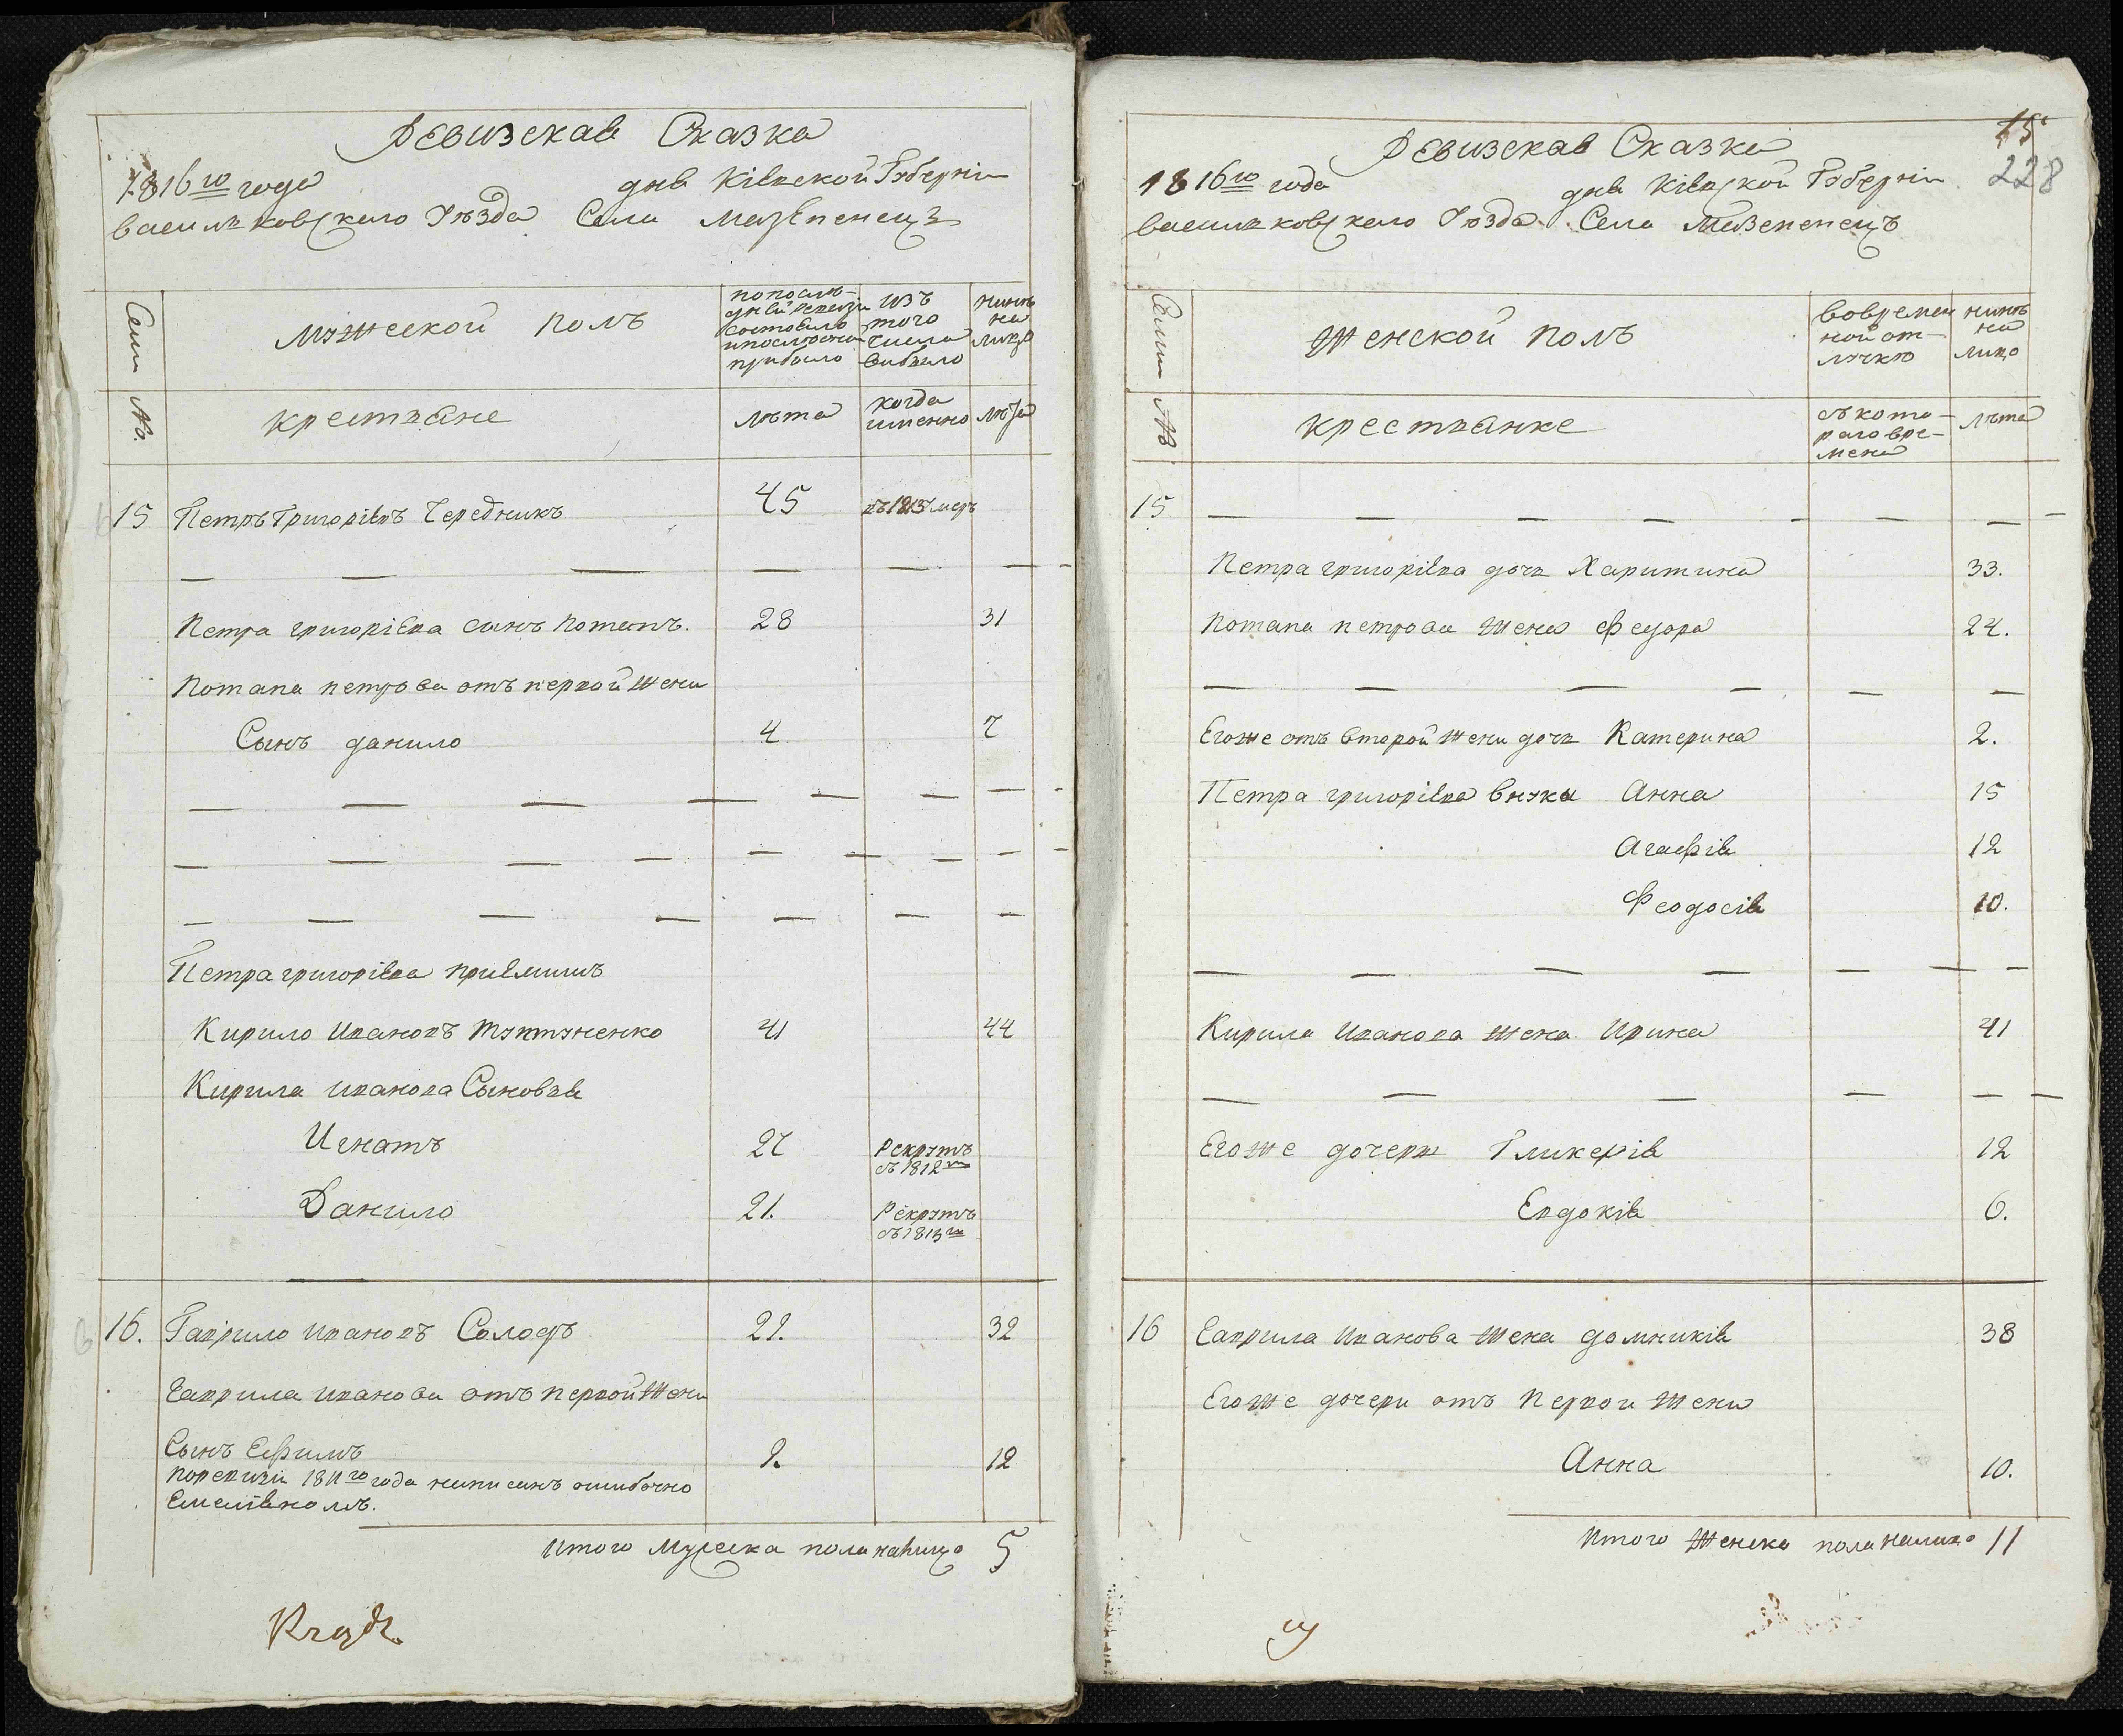 Ревизская Сказка
1816го года дня Кіевской Губерніи
васильковского Уезда Села Мазепенецъ
Семи
мужеской полъ
попослѣ-
дней ревизіи
состояло
ипослѣ оной
прибыло
изъ
того
числа
выбыло
нинѣ
на
лицо
№.
крестьяне
лѣта
когда
именно
лѣта
15 Петръ Григоріевъ Чередникъ 45 въ 1813 умеръ
Петра григоріева сынъ потапъ. 28 31
Потапа петрова отъ первой жени
Сынъ данило 4 7
Петра григоріева пріемишъ
Кирило Ивановъ Туптуненко 41 44
Кирила иванова Сыновья
Игнатъ 27 Рекрутъ
въ 1812м
Данило 21. Рекрутъ
въ 1813м
16. Гаврило ивановъ Солодъ 29. 32
гаврила иванова отъ первой жени
Сынъ Ефимъ 9. 12
поревизіи 1811го года написанъ ошибочно
Емеліяномъ.
Итого мужеска пола налицо 5
15
228
Ревизская Сказка
1816го года дня Кіевской Губерніи
васильковского Уезда Села Мазепенецъ
Семи
женской полъ
вовремен
ной от-
лучкѣ
нинѣ
на
лицо
№
крестьянке
съ кото-
раго вре-
мени
лѣта
15
Петра григоріева дочь Харитина 33.
Потапа петрова жена Федора 24.
Егоже отъ второй жени дочь Катерина 2.
Петра григоріева внуки Анна 15
Агафія 12
Феодосія 10.
Кирила Иванова жена Ирина 41
Егоже дочери Гликерія 12
Евдокія 6.
16 Гаврила Иванова жена домникія 38
Егоже дочери отъ первои жени
Анна 10.
Итого женска пола налицо 11